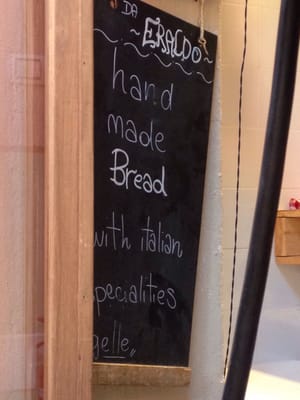 DA
~ ERALDO ~
hand
made
Bread
with italian
pecialities
gelle,,